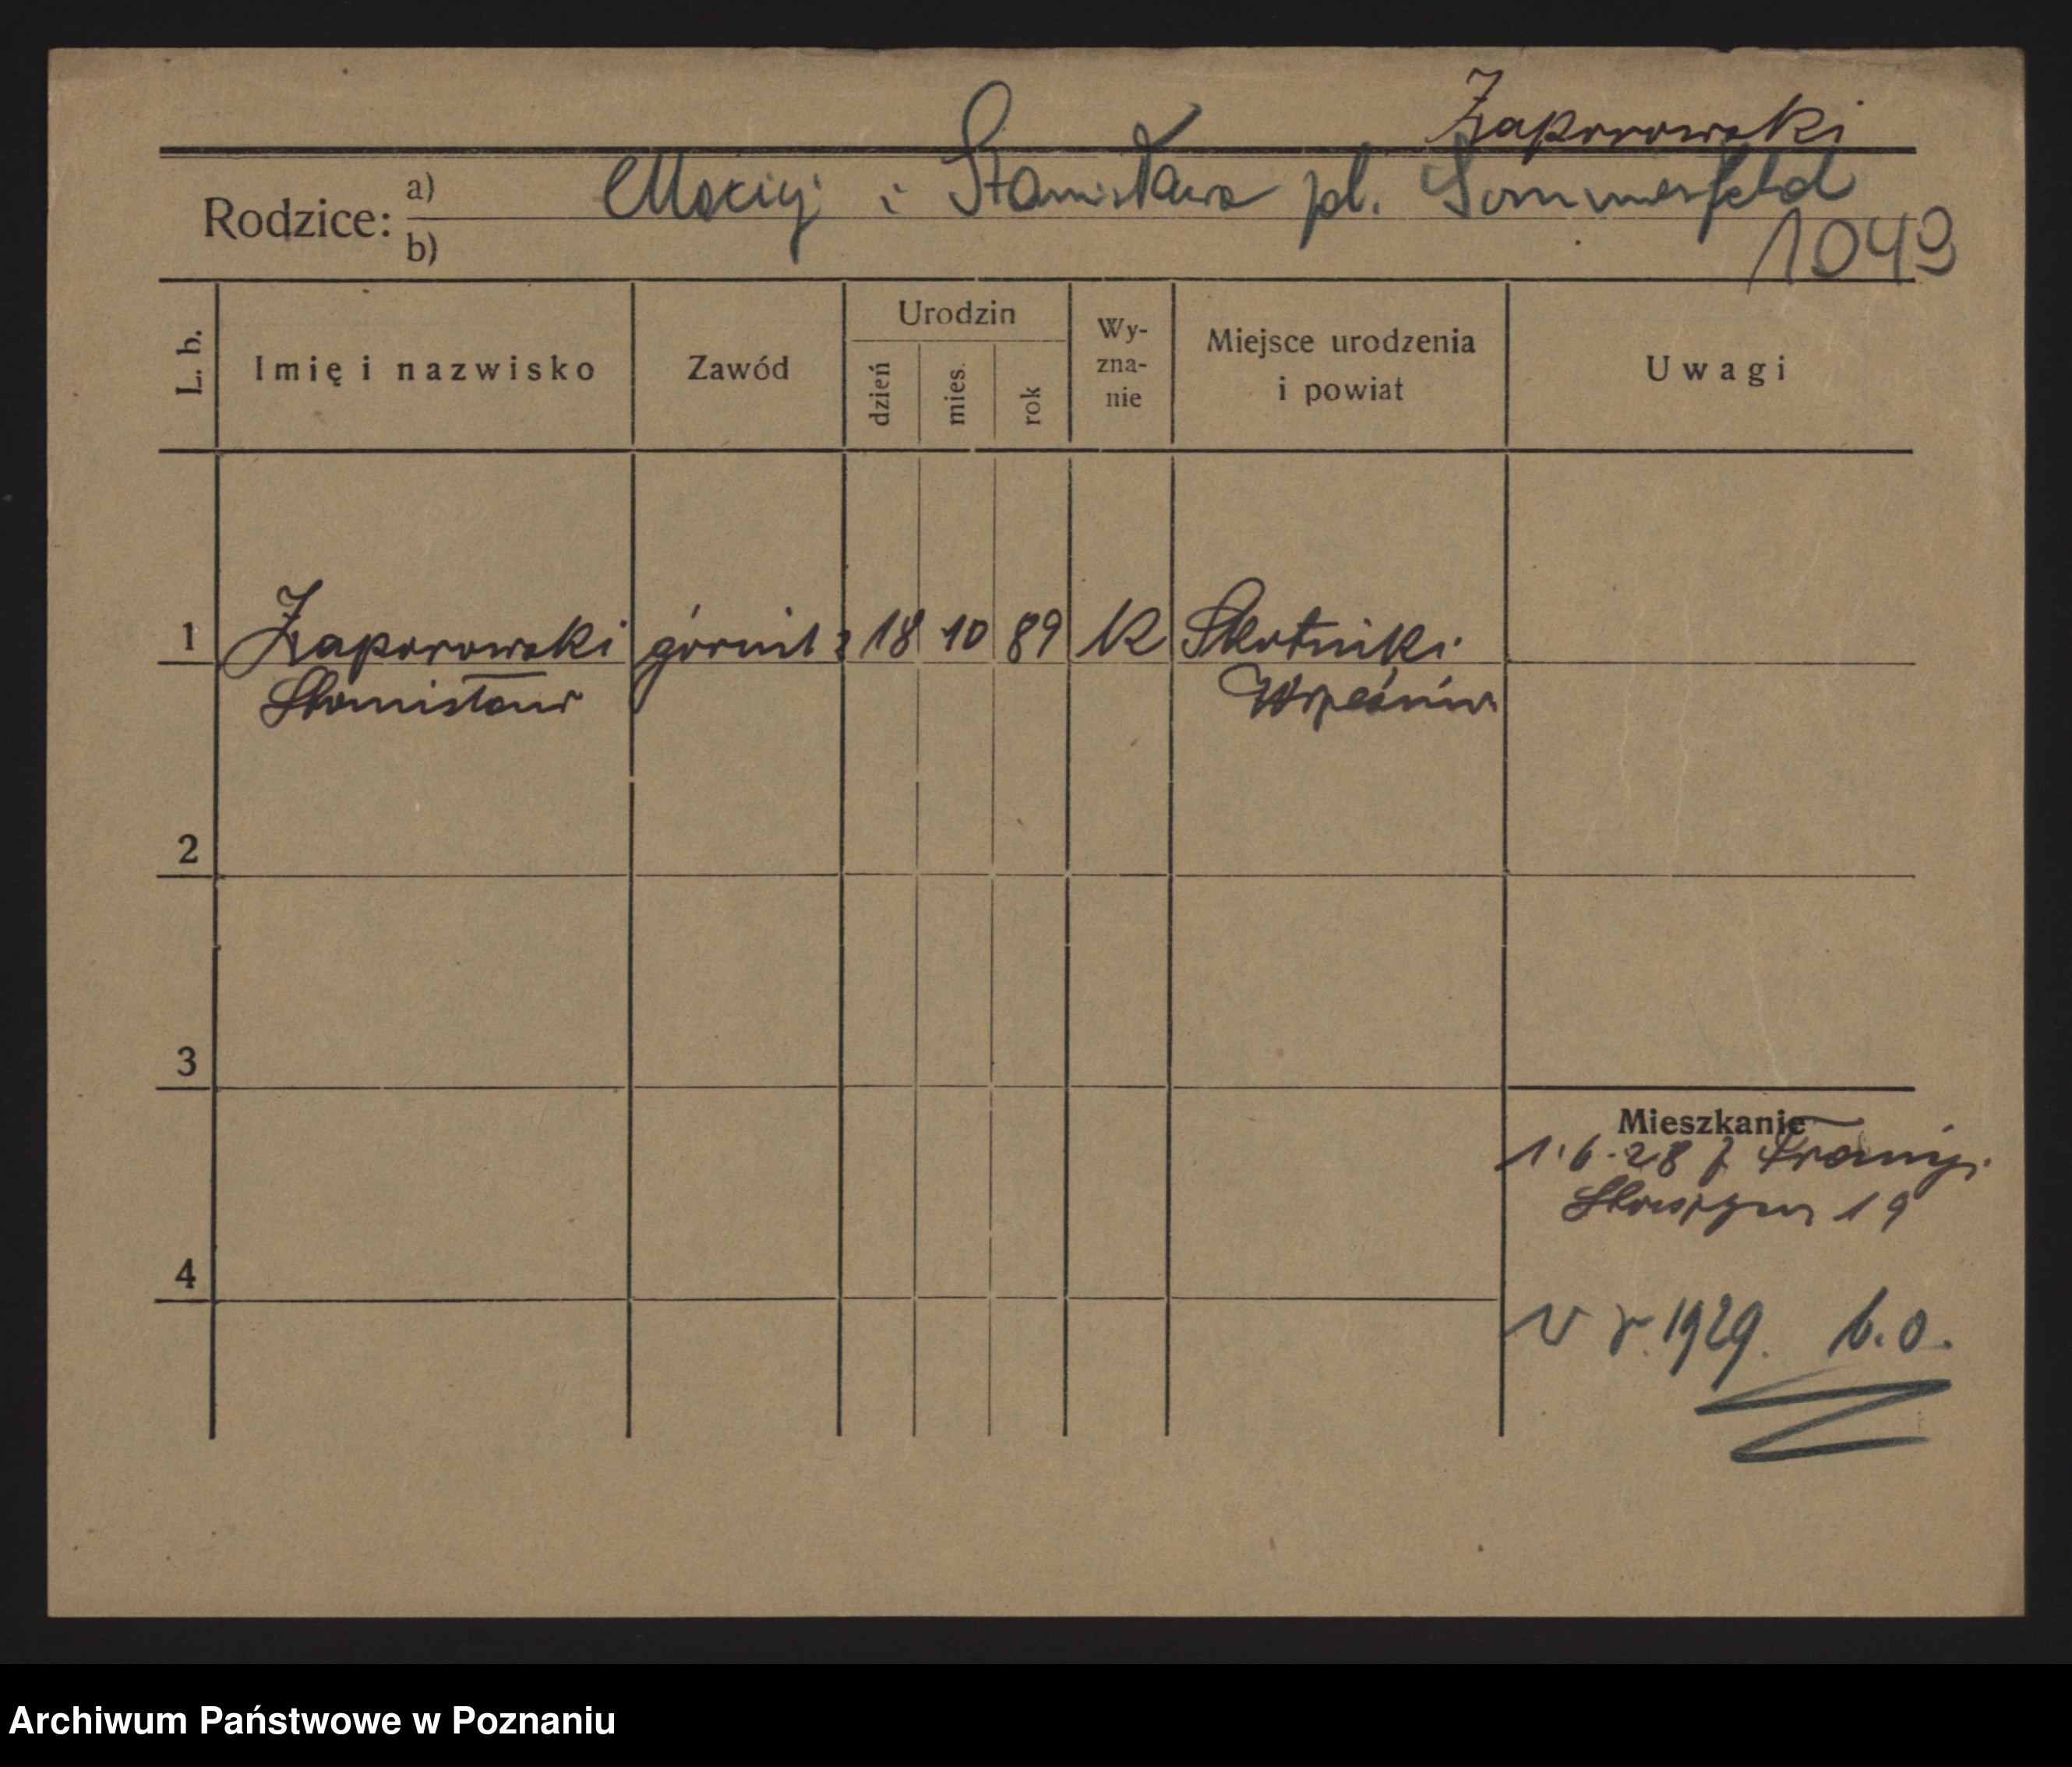 Zaporowski
Rodzice: a) Maciej i Stanisława pł. Sommerfeld
b) 1049
L. b. Imię i nazwisko Zawód Urodzin dzień mies. rok Wy-zna-nie Miejsce urodzenia i powiat Uwagi
1 Zaporowski górnik 18 10 89 K Skotniki
Stanisław Września
2
3
Mieszkanie
1.6.28 z Francji
19
4
w r. 1929. b.o.
Archiwum Państwowe w Poznaniu